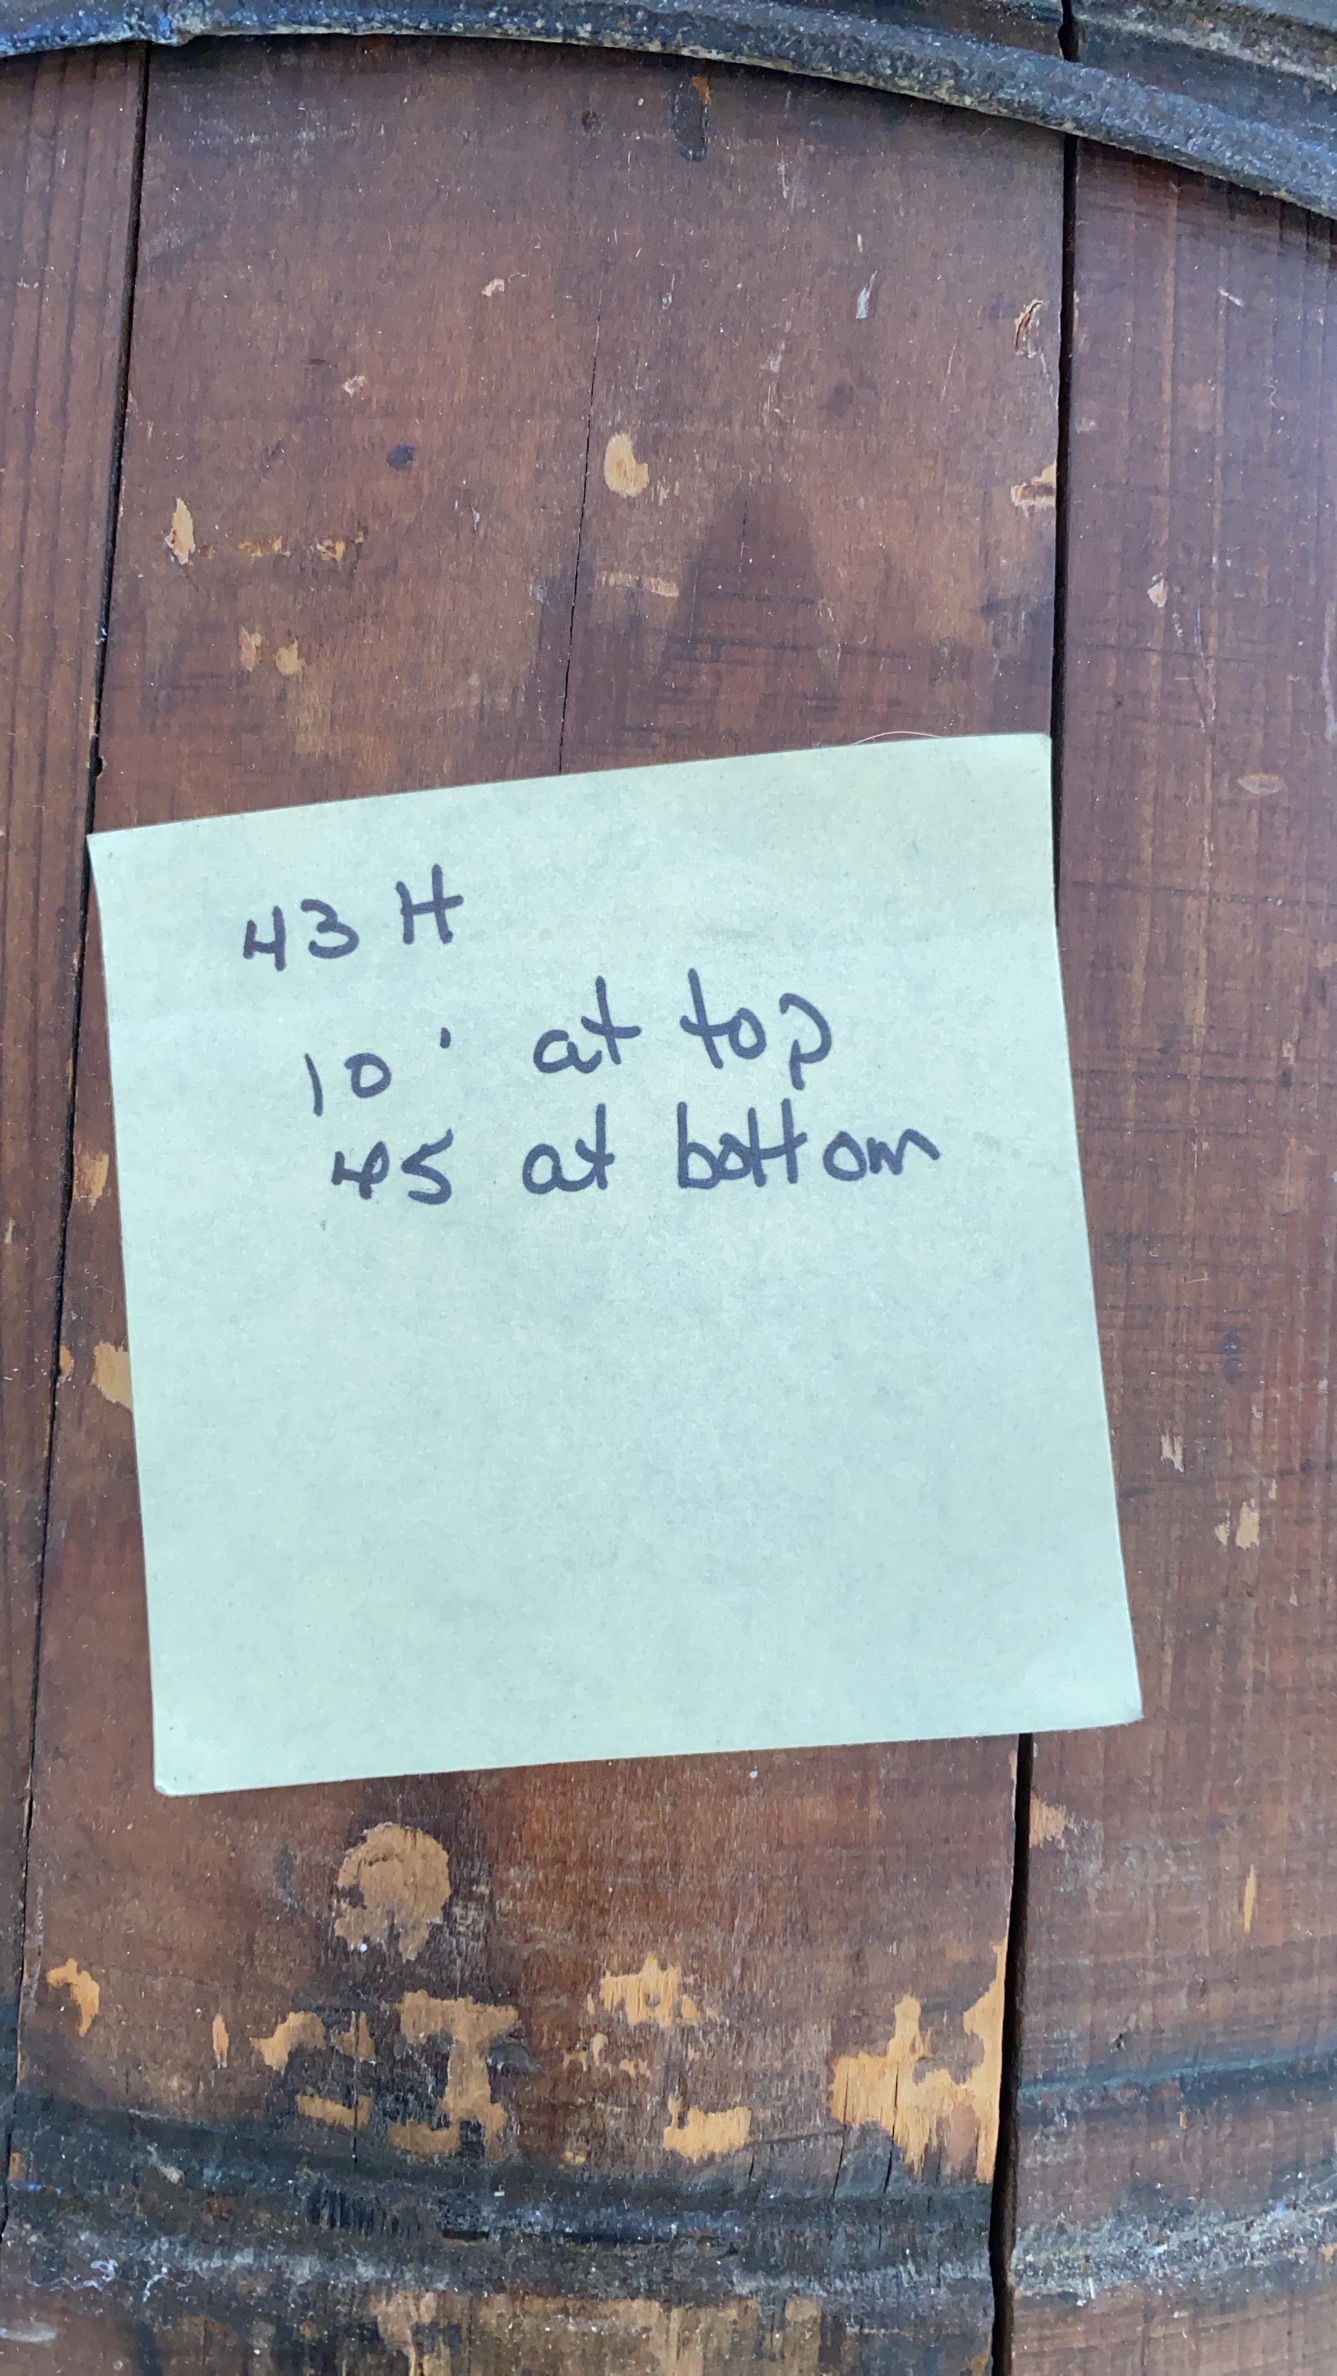 43 H
10' at top
45 at bottom